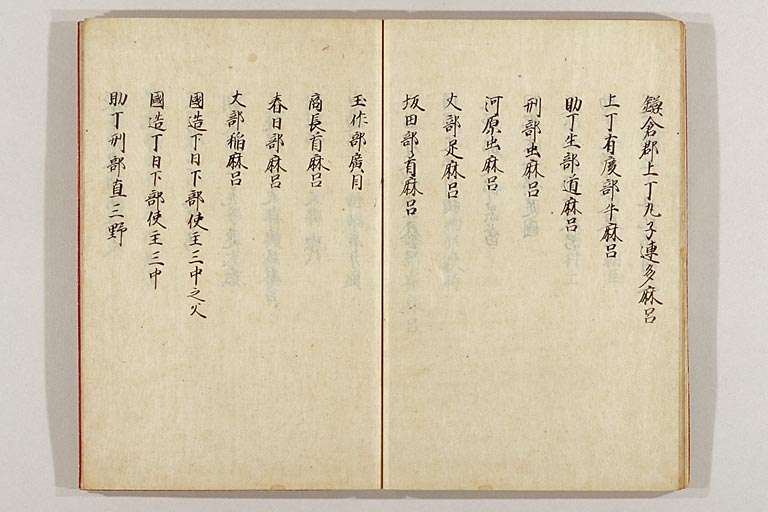 鎌倉郡上丁丸子連多麻呂
上丁有度部牛麻呂
助丁生部道麻呂
刑部虫麻呂
河原虫麻呂
丈部足麻呂
坂田部首麻呂
玉作部廣目
商長首麻呂
春日部麻呂
丈部稲麻呂
國造丁日下部使主三中之父
國造丁日下部使主三中
助丁刑部直三野